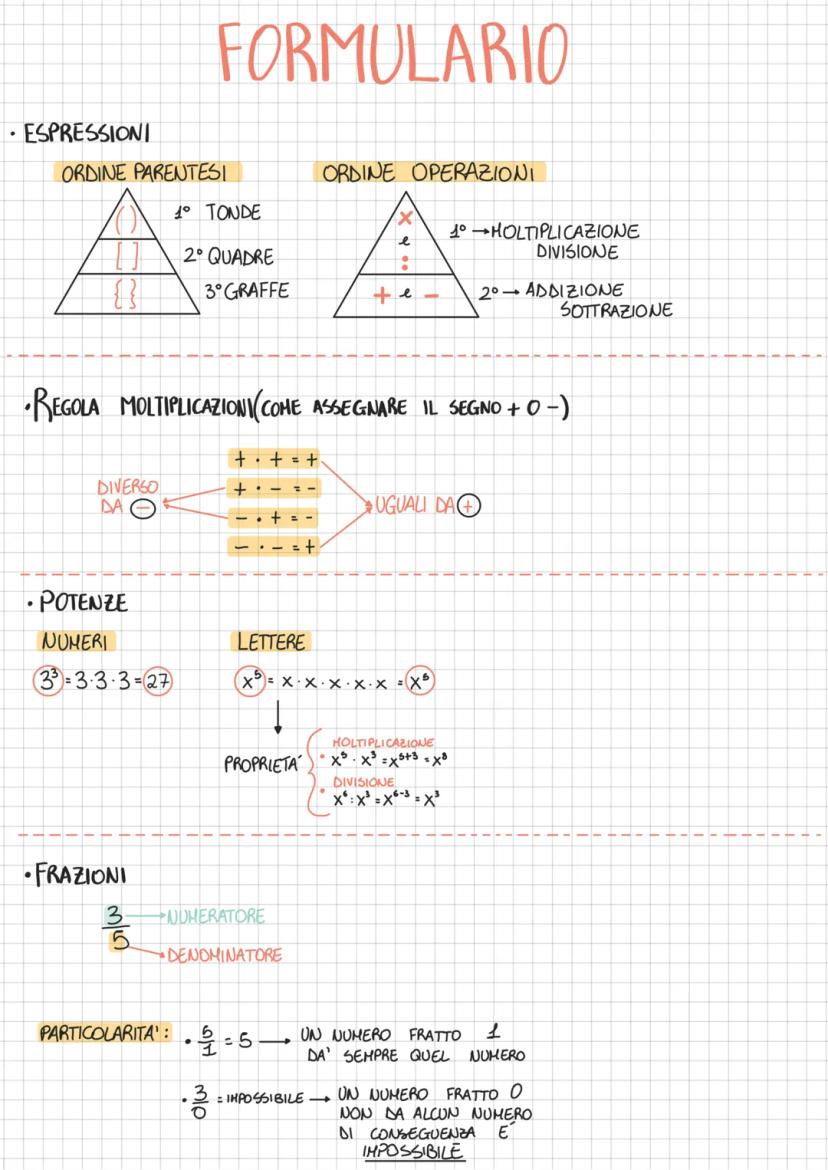 FORMULARIO
• ESPRESSIONI
ORDINE PARENTESI
( ) 1° TONDE
[ ] 2° QUADRE
{ } 3° GRAFFE
ORDINE OPERAZIONI
×
e
:
1° → MOLTIPLICAZIONE
DIVISIONE
+ e -
2° → ADDIZIONE
SOTTRAZIONE
• REGOLA MOLTIPLICAZIONI (COME ASSEGNARE IL SEGNO + O -)
+ · + = +
+ · - = -
- · + = -
- · - = +
DIVERSO
DA -
UGUALI DA +
• POTENZE
NUMERI
3³ = 3·3·3 = 27
LETTERE
x⁵ = x · x · x · x · x = x⁵
PROPRIETA'
MOLTIPLICAZIONE
• x⁵ · x³ = x⁵⁺³ = x⁸
DIVISIONE
• x⁶ : x³ = x⁶⁻³ = x³
• FRAZIONI
3 → NUMERATORE
5 → DENOMINATORE
PARTICOLARITA':
• 5/1 = 5 → UN NUMERO FRATTO 1
DA' SEMPRE QUEL NUMERO
• 3/0 = IMPOSSIBILE → UN NUMERO FRATTO 0
NON DA ALCUN NUMERO
DI CONSEGUENZA E'
IMPOSSIBILE